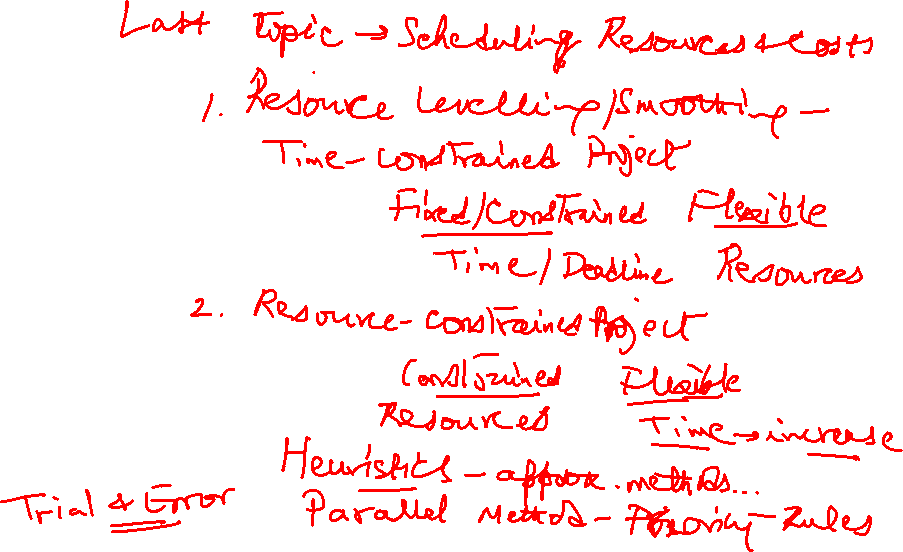 Last Topic → Scheduling Resources & Costs
1. Resource Levelling/Smoothing -
Time-constrained Project
Fixed/Constrained Flexible
Time/Deadline Resources
2. Resource-constrained Project
Constrained Flexible
Resources Time → increase
Heuristics - approx. methods...
Trial & Error Parallel Method - Priority Rules